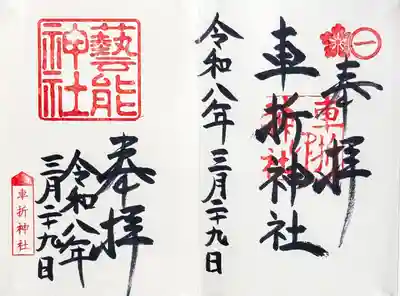 奉拝
車折神社
車折神社
令和八年三月二十九日
藝能神社
奉拝
令和八年
三月二十九日
車折神社